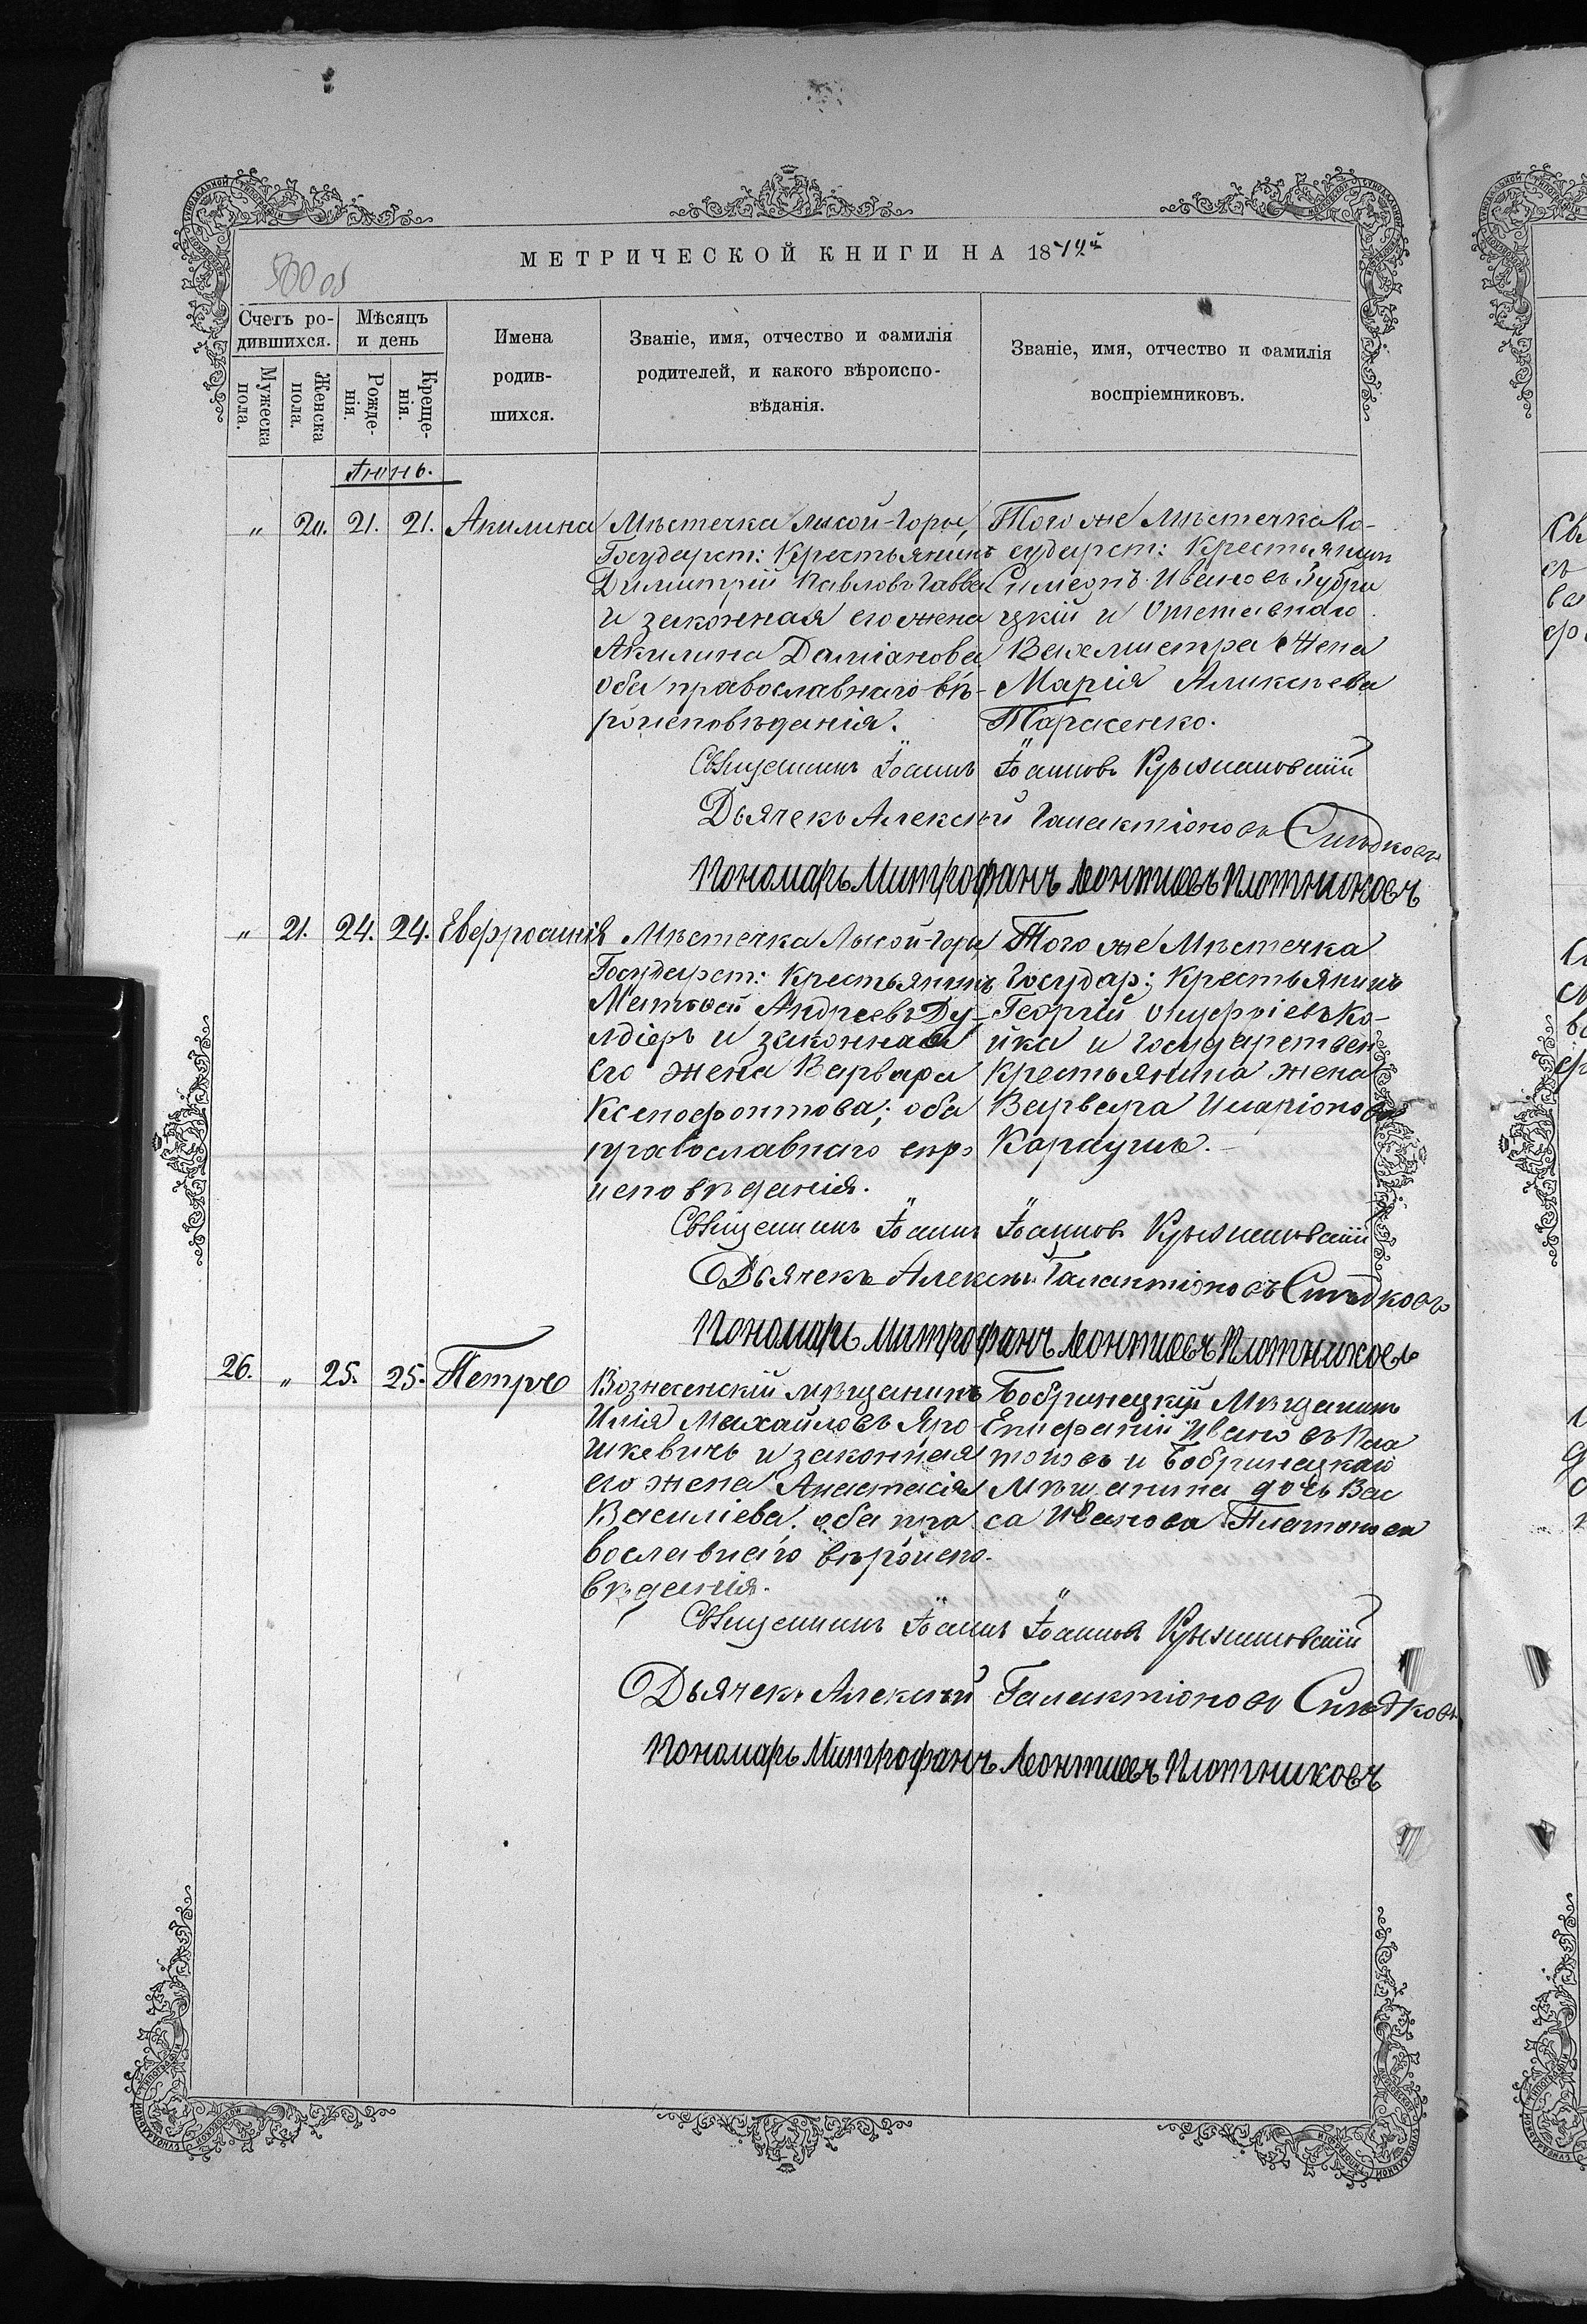 МЕТРИЧЕСКОЙ КНИГИ НА 1872й
Счетъ ро-
дившихся.
Мѣсяцъ
и день
Мужеска
пола.
Женска
пола.
Рожде-
нія.
Креще-
нія.
Имена
родив-
шихся.
Званіе, имя, отчество и фамилія
родителей, и какого вѣроиспо-
вѣданія.
Званіе, имя, отчество и фамилія
воспріемниковъ.
Іюнь.
„ 20. 21. 21. Акилина
Мѣстечка Лысой-Горы,
Государст: Крестьянинъ
Димитрій Павловъ Гавва
и законная его жена
Акилина Даміанова
оба православнаго вѣ-
роисповѣданія.
Того же Мѣстечка Го-
сударст: Крестьянин
Симеонъ Ивановъ Зубри
цкій и Отставнаго
Вахмистра Жена
Марія Аликсѣева
Тарасенко.
Священникъ Іоаннъ Іоанновъ Крыжановскій
Дьячекъ Алексѣй Галактіоновъ Слѣдковъ
Пономарь Митрофанъ Леонтиевъ Плотниковъ
„ 21. 24. 24. Евфросинія
Мѣстечка Лысой-Горы
Государст: Крестьянинъ
Матвѣй Андреевъ Ду-
лдіеръ и законная
его жена Варвара
Ксенофонтова; оба
православнаго вѣро
исповѣданія.
Того же Мѣстечка
Государ: Крестьянинъ
Георгій Онуфріевъ Ко-
йка и Государствен
Крестьянина жена
Варвара Иларіонова
Караушъ.
Священникъ Іоаннъ Іоанновъ Крыжановскій
Дьячекъ Алексѣй Галактіоновъ Слѣдковъ
Пономарь Митрофанъ Леонтиевъ Плотниковъ
26. „ 25. 25. Петръ
Вознесенскій мѣщанинъ
Илія Михайловъ Яро-
шкевичъ и законная
его жена Анастасія
Василіева. оба пра
вославнаго вѣроиспо-
вѣданія.
Бобринецкій Мѣщанинъ
Епифаній Ивановъ Пла
тоновъ и Бобринецкаго
Мѣщанина дочь Вас
са Иванова Платонова
Священникъ Іоаннъ Іоанновъ Крыжановскій
Дьячекъ Алексѣй Галактіоновъ Слѣдковъ
Пономарь Митрофанъ Леонтиевъ Плотниковъ